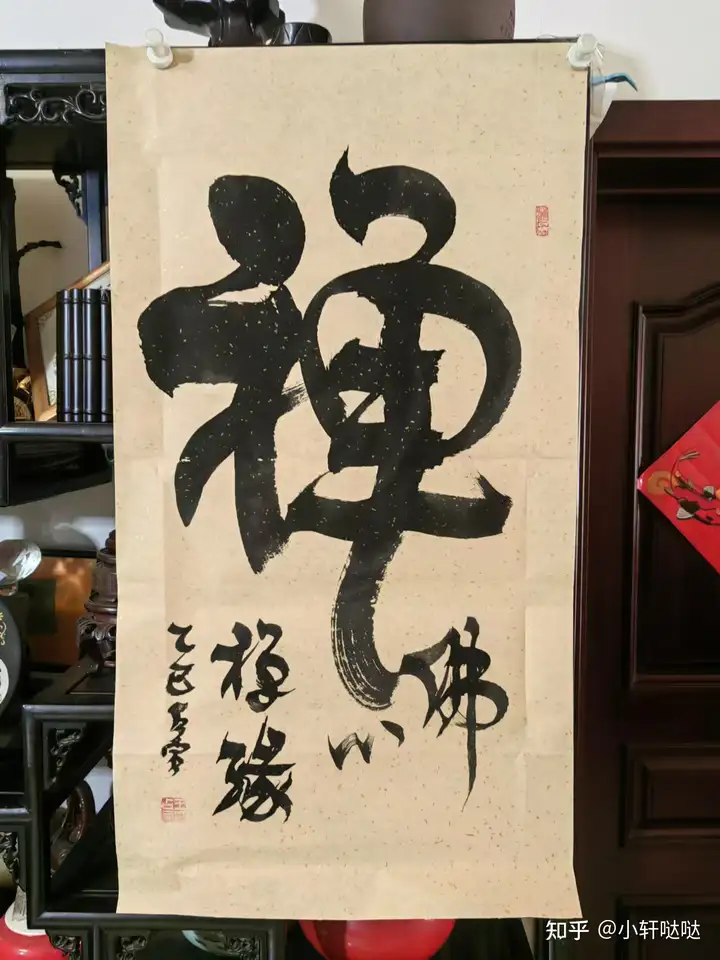 禅
佛心
禅缘
乙巳
知乎 @小轩哒哒